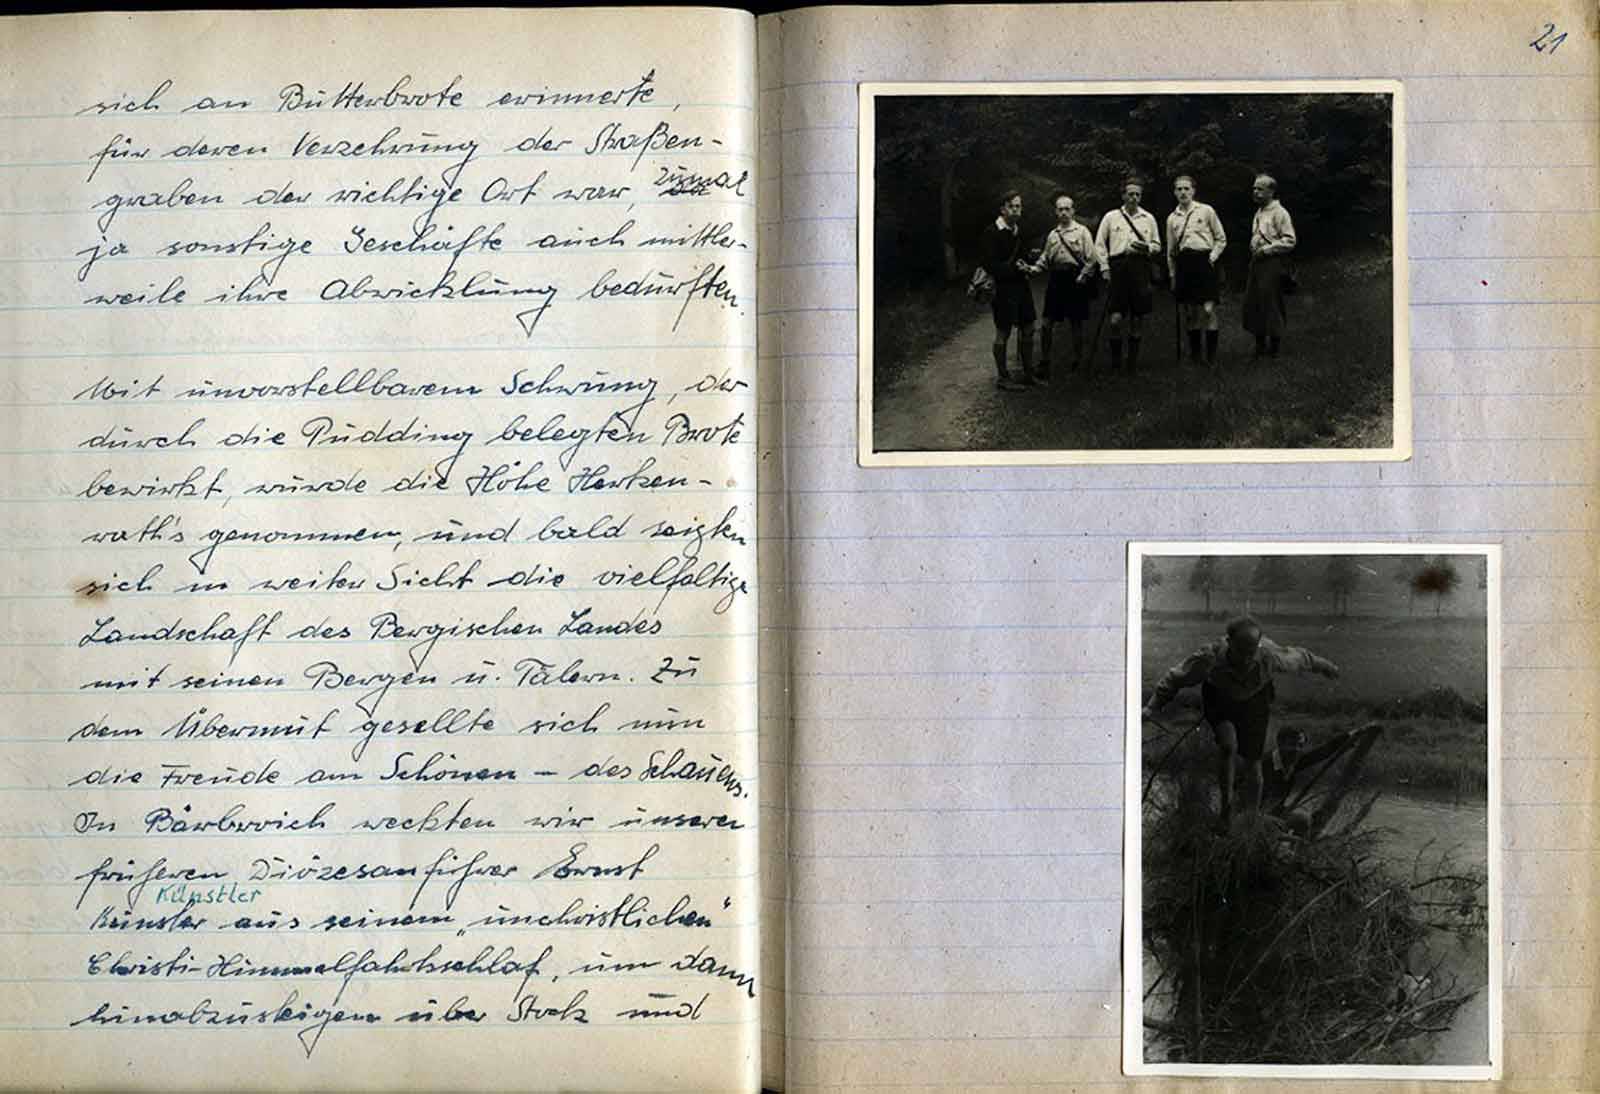 sich an Butterbrote erinnerte,
für deren Verzehrung der Straßen-
graben der richtige Ort war, zumal
ja sonstige Geschäfte auch mittler-
weile ihre Abwicklung bedurften.
Mit unvorstellbarem Schwung, der
durch die Pudding belegten Brote
bewirkt, wurde die Höhe Herken-
rath's genommen, und bald zeigten
sich in weiter Sicht die vielfältige
Landschaft des Bergischen Landes
mit seinen Bergen u. Tälern. Zu
dem Übermut gesellte sich nun
die Freude am Schönen - des Schauens.
In Bärbroich weckten wir unseren
früheren Diözesanführer Ernst
Künstler
Künsler aus seinem "unchristlichen"
Christi-Himmelfahrtsschlaf, um dann
hinabzusteigen über Stock und
21